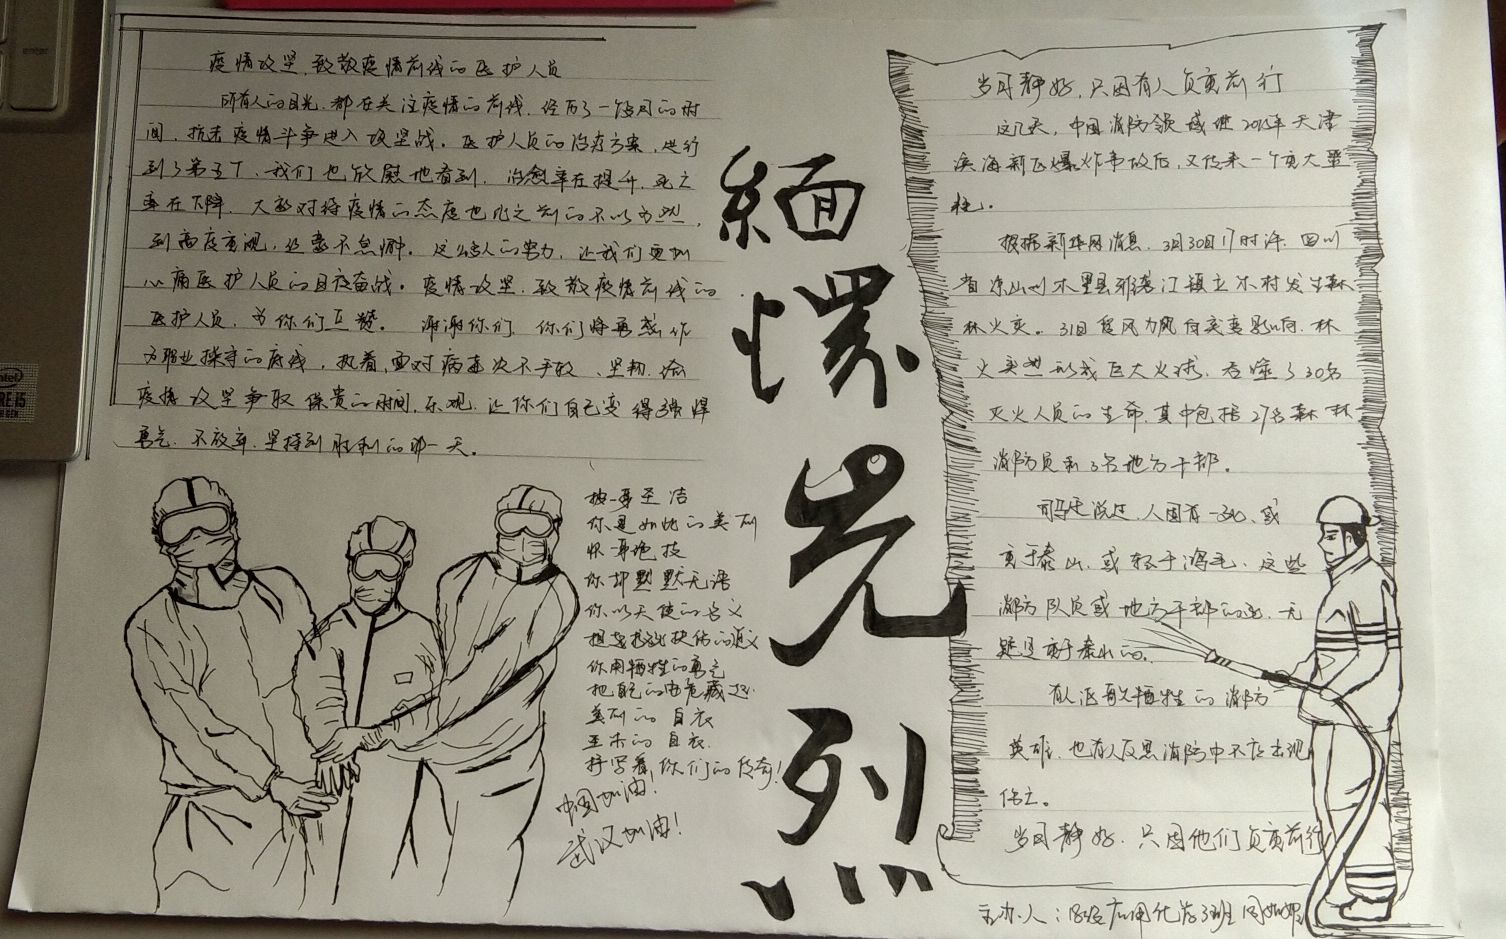 疫情攻坚，致敬疫情前线的医护人员
所有人的目光，都在关注疫情的前线，经历了一个多月的时
间，抗击疫情斗争进入攻坚战。医护人员的治疗方案，进行
到了第五个，我们也欣慰地看到，治愈率在提升，死亡
率在下降，大家对待疫情的态度也比之前的不以为然，
到高度重视，还毫不怠懈。这么多人的努力，让我们更加
心痛医护人员的日夜奋战。疫情攻坚，致敬疫情前线的
医护人员，为你们点赞。谢谢你们，你们将勇敢作
为职业操守的底线，执着，面对病毒决不手软，坚韧，给
疫情攻坚争取保贵的时间，乐观，让你们自己变得强悍
勇气，不放弃，坚持到胜利的那一天。
披一身圣洁
你是如此的美丽
怀身绝技
你却默默无语
你以天使的名义
担起救死扶伤的道义
你用牺牲的勇气
把自己的安危藏起
美丽的白衣
圣木的白衣
抒写着你们的传奇！
中国加油！
武汉加油！
緬懷先烈
岁月静好，只因有人负重前行
这几天，中国消防领域继2015年天津
滨海新区爆炸事故后，又传来一个重大噩
耗。
根据新华网消息，3月30日17时许，四川
省凉山州木里县雅砻江镇立尔村发生森
林火灾。31日受风力风向突变影响，林
火突然形成巨大火球，吞噬了30名
灭火人员的生命，其中包括27名森林
消防员和3名地方干部。
司马迁说过，人固有一死，或
重于泰山，或轻于鸿毛，这些
消防队员或地方干部的死，无
疑是重于泰山的。
有人泯 牺牲的消防
英雄，也有人反思消防中不应出现
伤亡。
岁月静好，只因他们负重前行
主办人：应用化学3班周
enter
intel
CORE i5
GEN